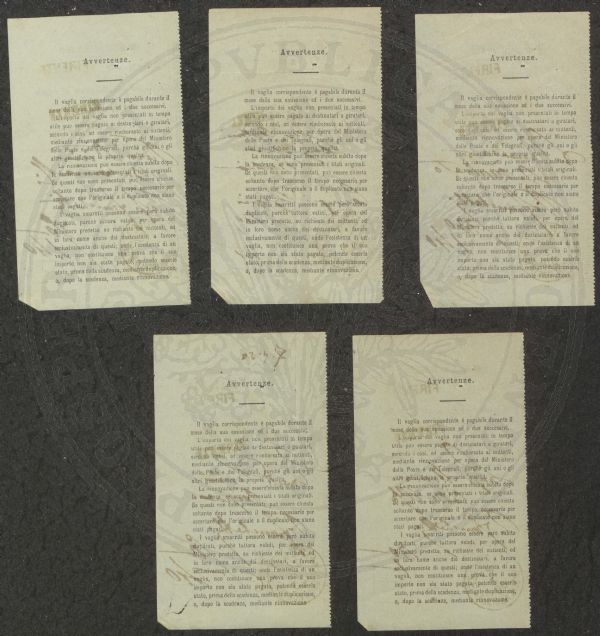 Avvertenze.
Il vaglia corrispondente è pagabile durante il
mese della sua emissione ed i due successivi.
L'importo dei vaglia non presentati in tempo
utile può essere pagato ai destinatari o giratari,
secondo i casi, od essere rimborsato ai mittenti,
mediante rinnovazione per opera del Ministero
delle Poste e dei Telegrafi, purchè gli uni o gli
altri giustifichino la propria qualità.
La rinnovazione può essere chiesta subito dopo
la scadenza, se sono presentati i titoli originali.
Se questi non sono presentati, può essere chiesta
soltanto dopo trascorso il tempo necessario per
accertare che l'originale e il duplicato non siano
stati pagati.
I vaglia smarriti possono essere però subito
duplicati, purchè tuttora validi, per opera del
Ministero predetto, su richiesta dei mittenti, ed
in loro nome anche dei destinatari, a favore
esclusivamente di questi; onde l'esistenza di un
vaglia, non costituisce una prova che il suo
importo non sia stato pagato, potendo esserlo
stato, prima della scadenza, mediante duplicazione,
o, dopo la scadenza, mediante rinnovazione.
Avvertenze.
Il vaglia corrispondente è pagabile durante il
mese della sua emissione ed i due successivi.
L'importo dei vaglia non presentati in tempo
utile può essere pagato ai destinatari o giratari,
secondo i casi, od essere rimborsato ai mittenti,
mediante rinnovazione per opera del Ministero
delle Poste e dei Telegrafi, purchè gli uni o gli
altri giustifichino la propria qualità.
La rinnovazione può essere chiesta subito dopo
la scadenza, se sono presentati i titoli originali.
Se questi non sono presentati, può essere chiesta
soltanto dopo trascorso il tempo necessario per
accertare che l'originale e il duplicato non siano
stati pagati.
I vaglia smarriti possono essere però subito
duplicati, purchè tuttora validi, per opera del
Ministero predetto, su richiesta dei mittenti, ed
in loro nome anche dei destinatari, a favore
esclusivamente di questi; onde l'esistenza di un
vaglia, non costituisce una prova che il suo
importo non sia stato pagato, potendo esserlo
stato, prima della scadenza, mediante duplicazione,
o, dopo la scadenza, mediante rinnovazione.
Avvertenze.
Il vaglia corrispondente è pagabile durante il
mese della sua emissione ed i due successivi.
L'importo dei vaglia non presentati in tempo
utile può essere pagato ai destinatari o giratari,
secondo i casi, od essere rimborsato ai mittenti,
mediante rinnovazione per opera del Ministero
delle Poste e dei Telegrafi, purchè gli uni o gli
altri giustifichino la propria qualità.
La rinnovazione può essere chiesta subito dopo
la scadenza, se sono presentati i titoli originali.
Se questi non sono presentati, può essere chiesta
soltanto dopo trascorso il tempo necessario per
accertare che l'originale e il duplicato non siano
stati pagati.
I vaglia smarriti possono essere però subito
duplicati, purchè tuttora validi, per opera del
Ministero predetto, su richiesta dei mittenti, ed
in loro nome anche dei destinatari, a favore
esclusivamente di questi; onde l'esistenza di un
vaglia, non costituisce una prova che il suo
importo non sia stato pagato, potendo esserlo
stato, prima della scadenza, mediante duplicazione,
o, dopo la scadenza, mediante rinnovazione.
Avvertenze.
Il vaglia corrispondente è pagabile durante il
mese della sua emissione ed i due successivi.
L'importo dei vaglia non presentati in tempo
utile può essere pagato ai destinatari o giratari,
secondo i casi, od essere rimborsato ai mittenti,
mediante rinnovazione per opera del Ministero
delle Poste e dei Telegrafi, purchè gli uni o gli
altri giustifichino la propria qualità.
La rinnovazione può essere chiesta subito dopo
la scadenza, se sono presentati i titoli originali.
Se questi non sono presentati, può essere chiesta
soltanto dopo trascorso il tempo necessario per
accertare che l'originale e il duplicato non siano
stati pagati.
I vaglia smarriti possono essere però subito
duplicati, purchè tuttora validi, per opera del
Ministero predetto, su richiesta dei mittenti, ed
in loro nome anche dei destinatari, a favore
esclusivamente di questi; onde l'esistenza di un
vaglia, non costituisce una prova che il suo
importo non sia stato pagato, potendo esserlo
stato, prima della scadenza, mediante duplicazione,
o, dopo la scadenza, mediante rinnovazione.
Avvertenze.
Il vaglia corrispondente è pagabile durante il
mese della sua emissione ed i due successivi.
L'importo dei vaglia non presentati in tempo
utile può essere pagato ai destinatari o giratari,
secondo i casi, od essere rimborsato ai mittenti,
mediante rinnovazione per opera del Ministero
delle Poste e dei Telegrafi, purchè gli uni o gli
altri giustifichino la propria qualità.
La rinnovazione può essere chiesta subito dopo
la scadenza, se sono presentati i titoli originali.
Se questi non sono presentati, può essere chiesta
soltanto dopo trascorso il tempo necessario per
accertare che l'originale e il duplicato non siano
stati pagati.
I vaglia smarriti possono essere però subito
duplicati, purchè tuttora validi, per opera del
Ministero predetto, su richiesta dei mittenti, ed
in loro nome anche dei destinatari, a favore
esclusivamente di questi; onde l'esistenza di un
vaglia, non costituisce una prova che il suo
importo non sia stato pagato, potendo esserlo
stato, prima della scadenza, mediante duplicazione,
o, dopo la scadenza, mediante rinnovazione.